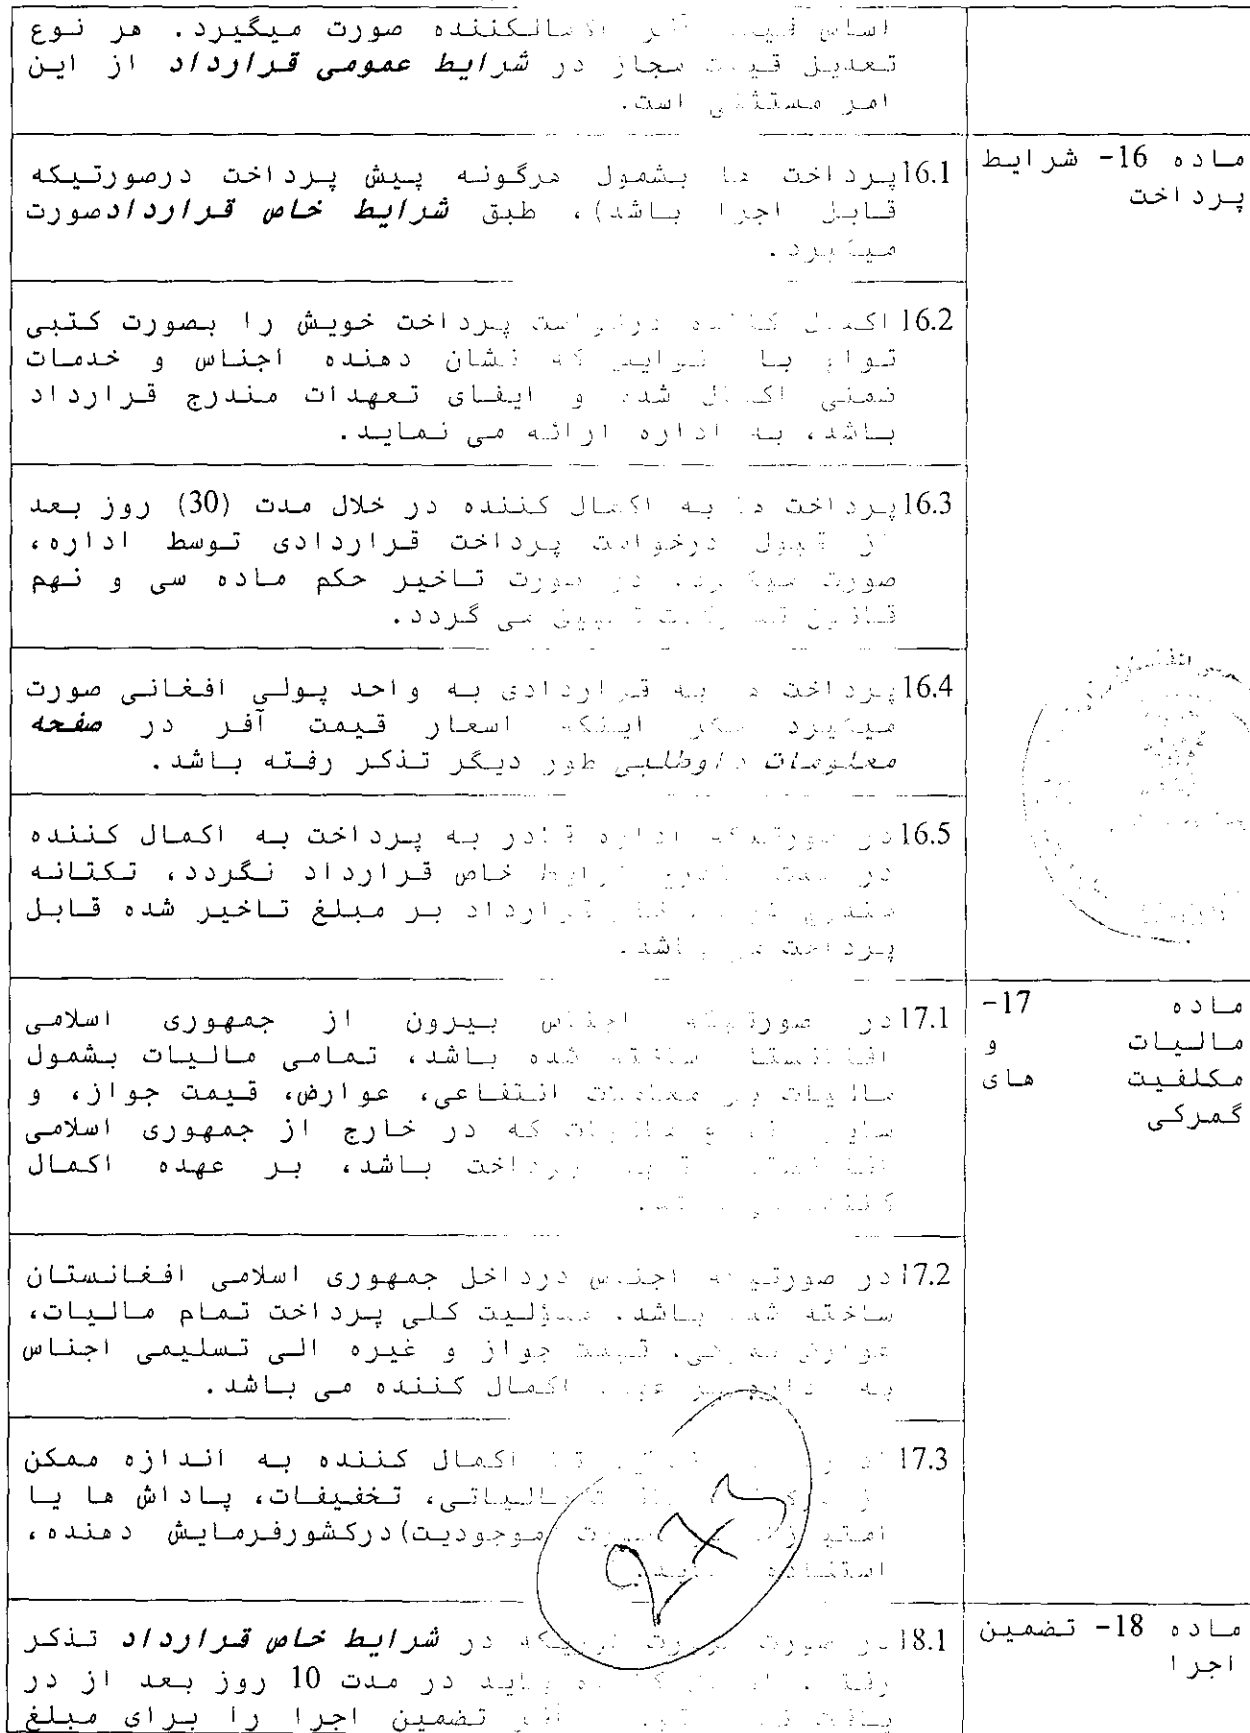 اساس صورت میگیرد. هر نوع
تعدیل قیمت مجاز در شرایط عمومی قرارداد از این
امر مستثنی است.
ماده 16- شرایط
پرداخت
16.1 پرداخت ها بشمول هرگونه پیش پرداخت درصورتیکه
قابل اجرا باشد)، طبق شرایط خاص قرارداد صورت
میگیرد.
16.2 اکمال کننده درخواست پرداخت خویش را بصورت کتبی
با که نشان دهنده اجناس و خدمات
ضمنی اکمال شده و ایفای تعهدات مندرج قرارداد
باشد، به اداره ارائه می نماید.
16.3 پرداخت ها به اکمال کننده در خلال مدت (30) روز بعد
از قبول درخواست پرداخت قراردادی توسط اداره،
صورت میگیرد. در صورت تاخیر حکم ماده سی و نهم
قانون می گردد.
16.4 پرداخت ها به قراردادی به واحد پولی افغانی صورت
میگیرد مگر اینکه اسعار قیمت آفر در صفحه
معلومات داوطلبی طور دیگر تذکر رفته باشد.
16.5 در صورتیکه اداره قادر به پرداخت به اکمال کننده
در شرایط خاص قرارداد نگردد، تکتانه
مندرج قرارداد بر مبلغ تاخیر شده قابل
پرداخت می باشد.
ماده 17-
مالیات و
مکلفیت های
گمرکی
17.1 در صورتیکه اجناس بیرون از جمهوری اسلامی
افغانستان ساخته شده باشد، تمامی مالیات بشمول
مالیات بر معاملات انتفاعی، عوارض، قیمت جواز، و
سایر مالیات که در خارج از جمهوری اسلامی
پرداخت باشد، بر عهده اکمال
کننده
17.2 در صورتیکه اجناس درداخل جمهوری اسلامی افغانستان
ساخته شده باشد. مسؤلیت کلی پرداخت تمام مالیات،
عوارض قیمت جواز و غیره الی تسلیمی اجناس
به اداره بر اکمال کننده می باشد.
17.3 تا اکمال کننده به اندازه ممکن
از مالیاتی، تخفیفات، پاداش ها یا
صورت موجودیت) درکشورفرمایش دهنده،
استفاده نماید.
ماده 18- تضمین
اجرا
18.1 در صورت در شرایط خاص قرارداد تذکر
باید در مدت 10 روز بعد از در
یافت تضمین اجرا را برای مبلغ